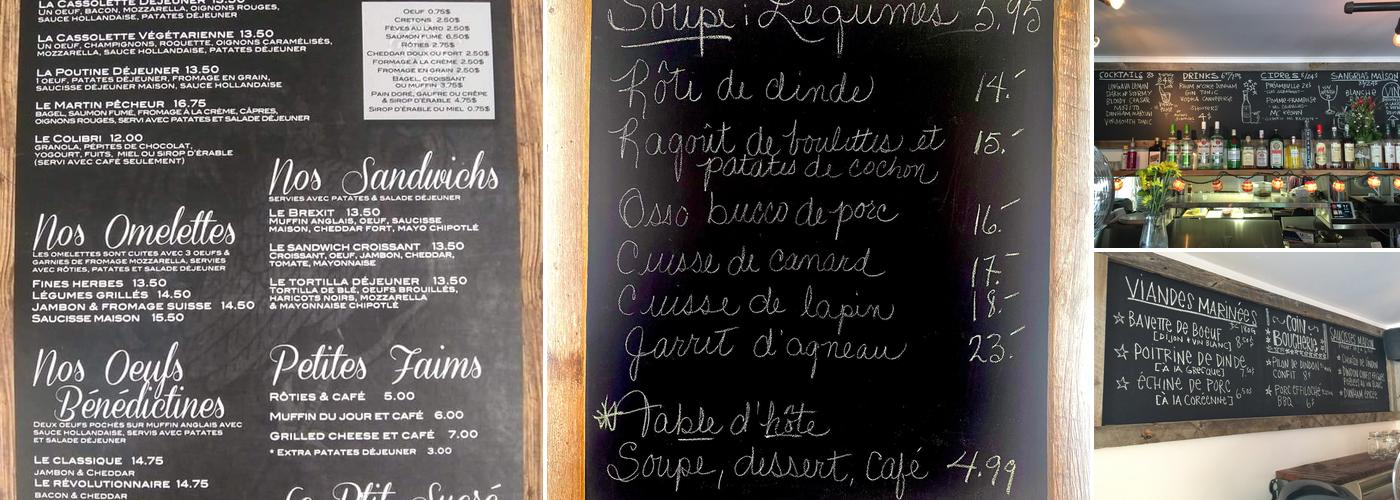 La Cassolette Déjeuner 13.50
un oeuf, bacon, mozzarella, oignons rouges,
sauce hollandaise, patates déjeuner
La Cassolette Végétarienne 13.50
un oeuf, champignons, roquette, oignons caramélisés,
mozzarella, sauce hollandaise, patates déjeuner
La Poutine Déjeuner 13.50
1 oeuf, patates déjeuner, fromage en grain,
saucisse déjeuner maison, sauce hollandaise
Le Martin Pêcheur 16.75
bagel, saumon fumé, fromage à la crème, câpres,
oignons rouges, servi avec patates et salade déjeuner
Le Colibri 12.00
granola, pépites de chocolat,
yogourt, fuits, miel ou sirop d'érable
(servi avec café seulement)
Nos Omelettes
Les omelettes sont cuites avec 3 oeufs &
garnies de fromage mozzarella, servies
avec rôties, patates et salade déjeuner
Fines herbes 13.50
Légumes grillés 14.50
Jambon & fromage suisse 14.50
Saucisse maison 15.50
Nos Oeufs
Bénédictines
Deux oeufs pochés sur muffin anglais avec
sauce hollandaise, servis avec patates
et salade déjeuner
Le classique 14.75
Jambon & cheddar
Le révolutionnaire 14.75
Bacon & cheddar
Oeuf 0.75$
Cretons 2.50$
Fèves au lard 2.50$
Saumon fumé 6.50$
Rôties 2.75$
Cheddar doux ou fort 2.50$
Formage à la crème 2.50$
Fromage en grain 2.50$
Bagel, croissant
ou muffin 3.75$
Pain doré, gaufre ou crêpe
& sirop d'érable 4.75$
Sirop d'érable ou miel 0.75$
Nos Sandwichs
servies avec patates & salade déjeuner
Le Brexit 13.50
Muffin anglais, oeuf, saucisse
maison, cheddar fort, mayo chipotlé
Le sandwich croissant 13.50
Croissant, oeuf, jambon, cheddar,
tomate, mayonnaise
Le tortilla déjeuner 13.50
Tortilla de blé, oeufs brouillés,
haricots noirs, mozzarella
& mayonnaise chipotlé
Petites Faims
Rôties & café 5.00
Muffin du jour et café 6.00
Grilled cheese et café 7.00
* Extra patates déjeuner 3.00
Le Ptit Sucré
Soupe : Légumes 5.95
Rôti de dinde 14.-
Ragoût de boulettes et
patates de cochon 15.-
Osso bucco de porc 16.-
Cuisse de canard 17.-
Cuisse de lapin 18.-
Jarret d'agneau 23.-
Table d'hôte
Soupe, dessert, café 4.99
COCKTAILS 8$
DRINKS
CIDRES
SANGRIAS MAISON
BLANCHE
MOJITO
GIN TONIC
VIANDES MARINÉES
☆ BAVETTE DE BOEUF
[DIJON + VIN BLANC]
☆ POITRINE DE DINDE
[À LA GRECQUE]
☆ ÉCHINE DE PORC
[À LA CORÉENNE]
COIN
BOUCHERIE
PILON DE DINDON
CONFIT 8$
PORC EFFILOCHÉ
BBQ
SAUCISSES MAISON